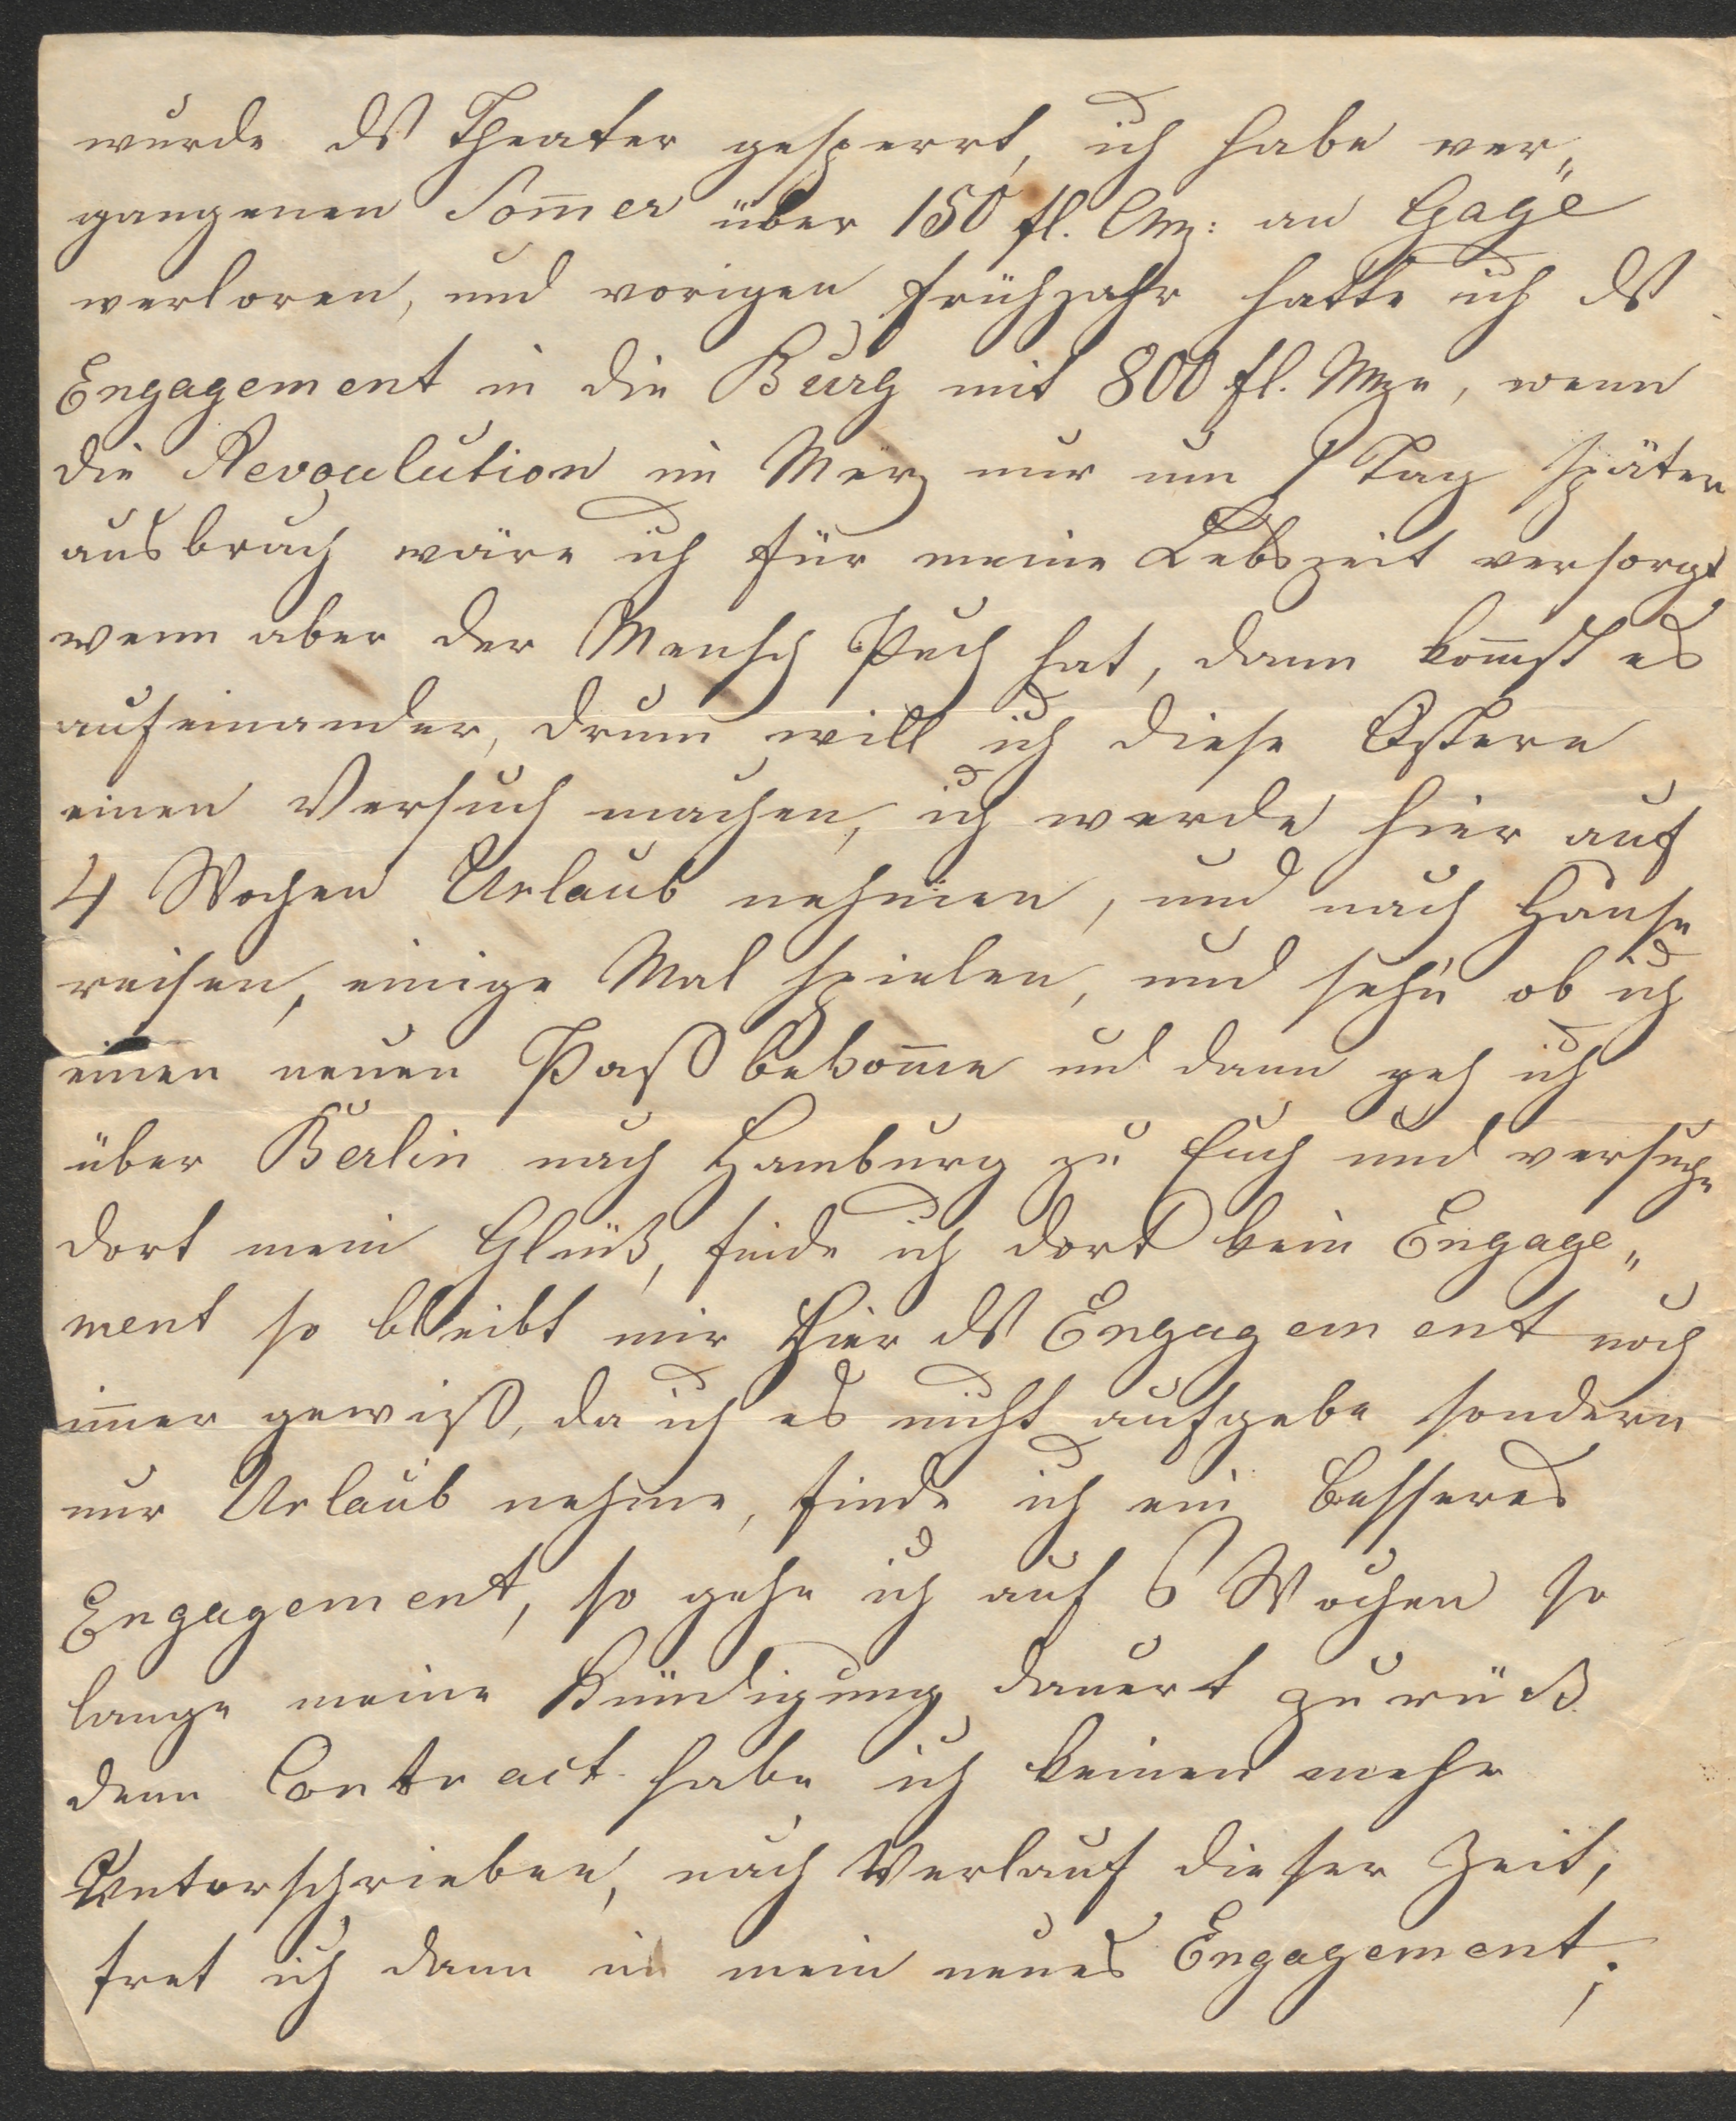 wurde ds Theater gesperrt, ich habe ver„
gangenen Som̅er über 150 fl. CMz: an Gage
verloren, und vorigen Frühjahr hatte ich ds
Engagement in die Burg mit 800 fl. Mze, wenn
die Revoulution im März nur um 1 Tag später
ausbrach wäre ich für meine Lebszeit versorgt,
wenn aber der Mensch Pech hat, dann kom̅t es
aufeinander, drum will ich diese Ostern
einen Versuch machen, ich werde hier auf
4 Wochen Urlaub nehmen, und nach Hause
reisen, einige Mal spielen, und sehn ob ich
einen neuen Paß bekom̅e und dann geh ich
über Berlin nach Hamburg zu Euch und versuche
dort mein Glück, finde ich dort kein Engage„
ment so bleibt mir hier ds Engagement noch
im̅er gewiß, da ich es nicht aufgebe sondern
nur Urlaub nehme, finde ich ein besseres
Engagement, so gehe ich auf 6 Wochen so
lange meine Kündigung dauert zurück
denn Contract habe ich keinen mehr
Unterschrieben, nach Verlauf dieser Zeit,
tret ich dann in mein neues Engagement;